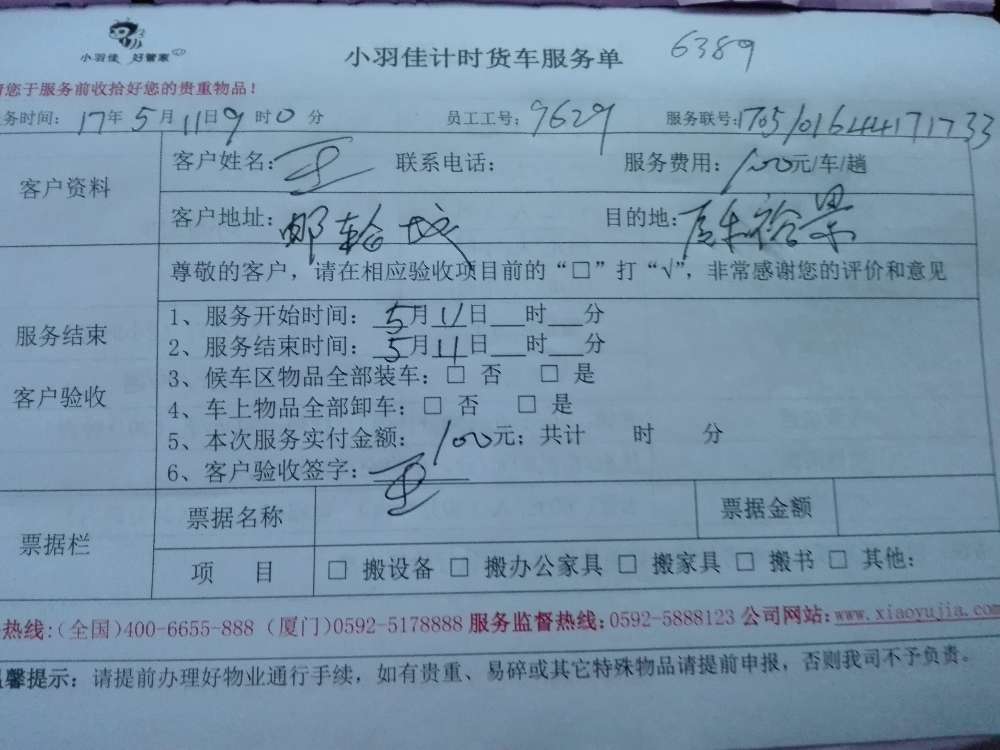 小羽佳 好管家
小羽佳计时货车服务单 6389
您于服务前收拾好您的贵重物品！
务时间： 17年5月11日9时0分 员工工号：9629 服务联号：170510164417 1733
客户资料
客户姓名：王 联系电话： 服务费用：100元/车/趟
客户地址：邮轮城 目的地：裕景
尊敬的客户，请在相应验收项目前的“□”打“√”，非常感谢您的评价和意见
服务结束
客户验收
1、服务开始时间：5月11日___时___分
2、服务结束时间：5月11日___时___分
3、候车区物品全部装车：□ 否 □ 是
4、车上物品全部卸车：□ 否 □ 是
5、本次服务实付金额：100元；共计 时 分
6、客户验收签字：王
票据栏
票据名称 票据金额
项 目 □ 搬设备 □ 搬办公家具 □ 搬家具 □ 搬书 □ 其他：
热线：（全国）400-6655-888（厦门）0592-5178888 服务监督热线：0592-5888123 公司网站：www.xiaoyujia.com
馨提示：请提前办理好物业通行手续，如有贵重、易碎或其它特殊物品请提前申报，否则我司不予负责。